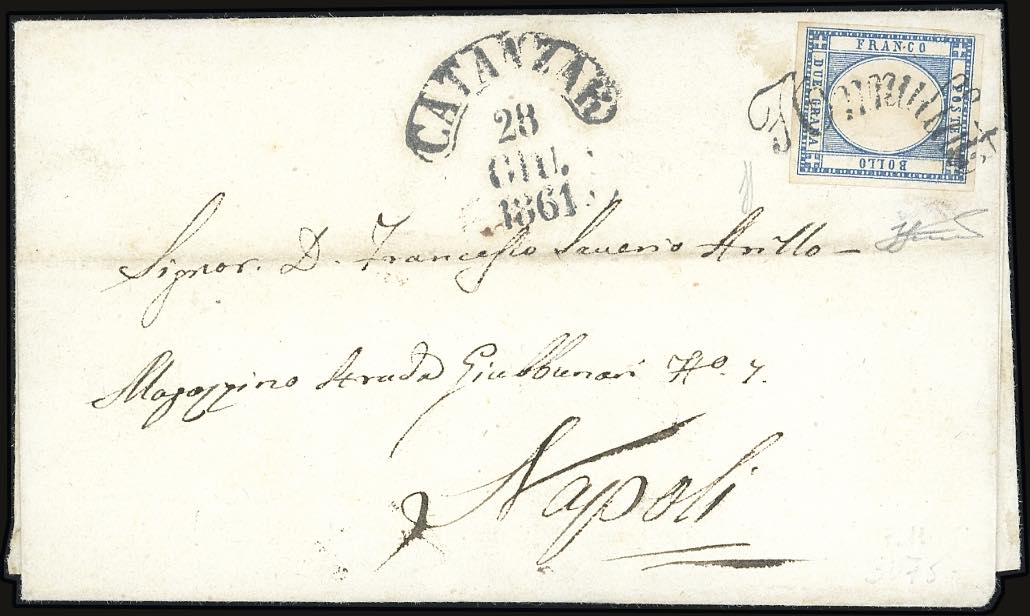 CATANZAR
28
GIU.
1861
FRANCO
DUE GRANA
POSTALE
BOLLO
Annullato
Signor. D. Francesco Saverio Arillo -
Magazzino Strada Giubbonari No. 7.
Napoli